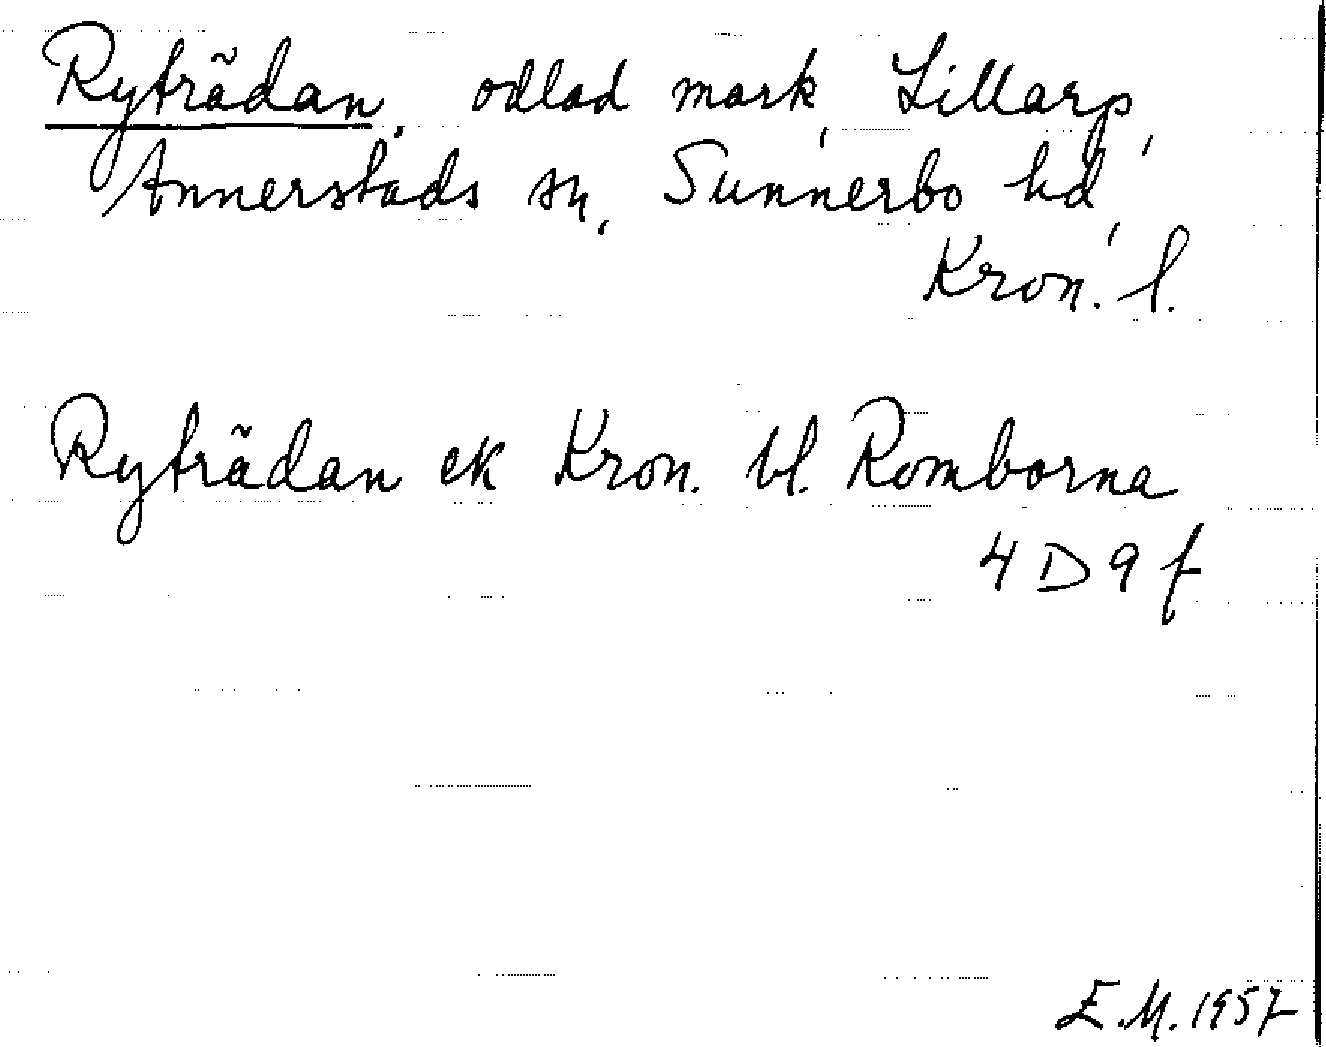 Ryträdan, odlad mark, Lillarp,
Annerstads sn, Sunnerbo hd,
Kron. l.
Ryträdan ek Kron. bl. Romborna
4 D 9 f
E.M. 1957